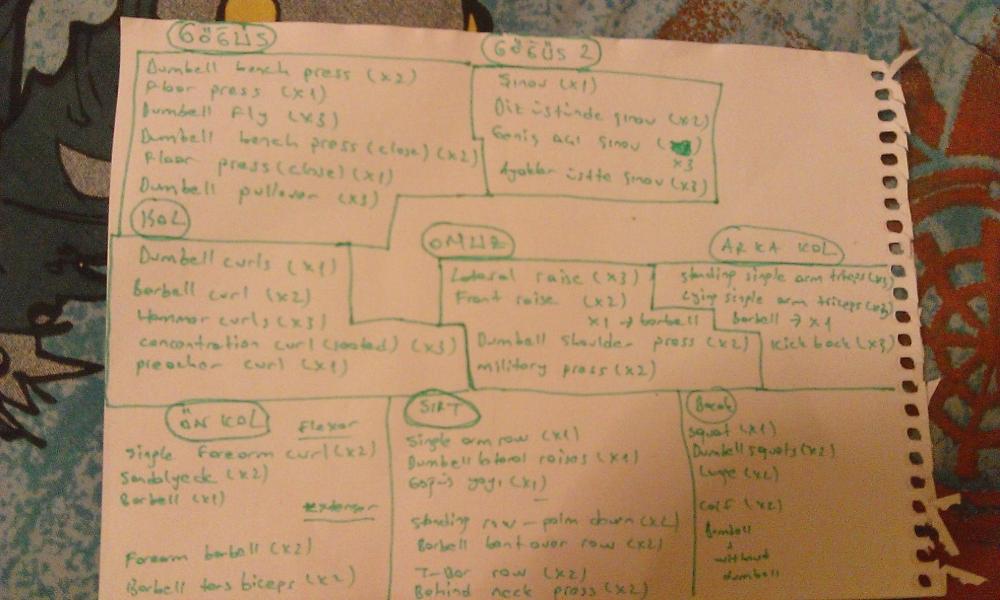 GÖĞÜS
Dumbell bench press (x2)
Floor press (x1)
Dumbell Fly (x3)
Dumbell bench press (close) (x2)
Floor press (close) (x1)
Dumbell pullover (x3)
GÖĞÜS 2
Şınav (x1)
Diz üstünde şınav (x2)
Geniş açı şınav
x3
Ayaklar üstte şınav (x3)
KOL
Dumbell curls (x1)
Barbell curl (x2)
Hammer curls (x3)
concentration curl (seated) (x3)
preacher curl (x1)
OMUZ
Lateral raise (x3)
Front raise (x2)
x1 → barbell
Dumbell shoulder press (x2)
military press (x2)
ARKA KOL
standing single arm triceps (x3)
Lying single arm triceps (x3)
barbell → x1
Kick back (x3)
ÖN KOL
Flexor
Single Forearm curl (x2)
Sandalyede (x2)
Barbell (x1)
extensor
Forearm barbell (x2)
Barbell ters biceps (x2)
SIRT
Single arm row (x1)
Dumbell lateral raises (x1)
Göğüs yayı (x1)
Standing row - palm down (x2)
Barbell bent over row (x2)
T-Bar row (x2)
Behind neck press (x2)
Bacak
Squat (x1)
Dumbell squats (x2)
Lunge (x2)
Calf (x2)
Dumbell
+
without
dumbell